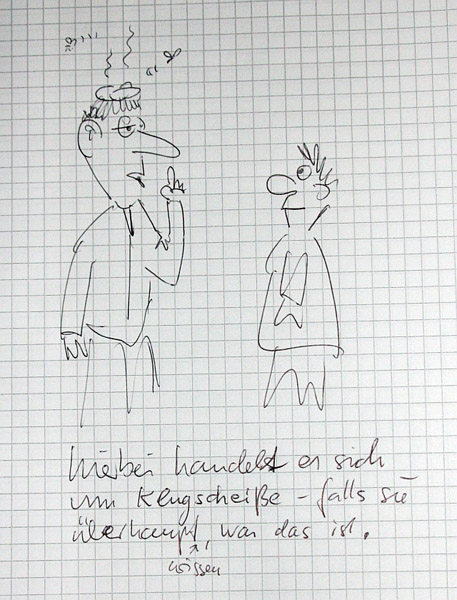 hierbei handelt es sich
um Klugscheiße – falls sie
überhaupt, was das ist.
wissen